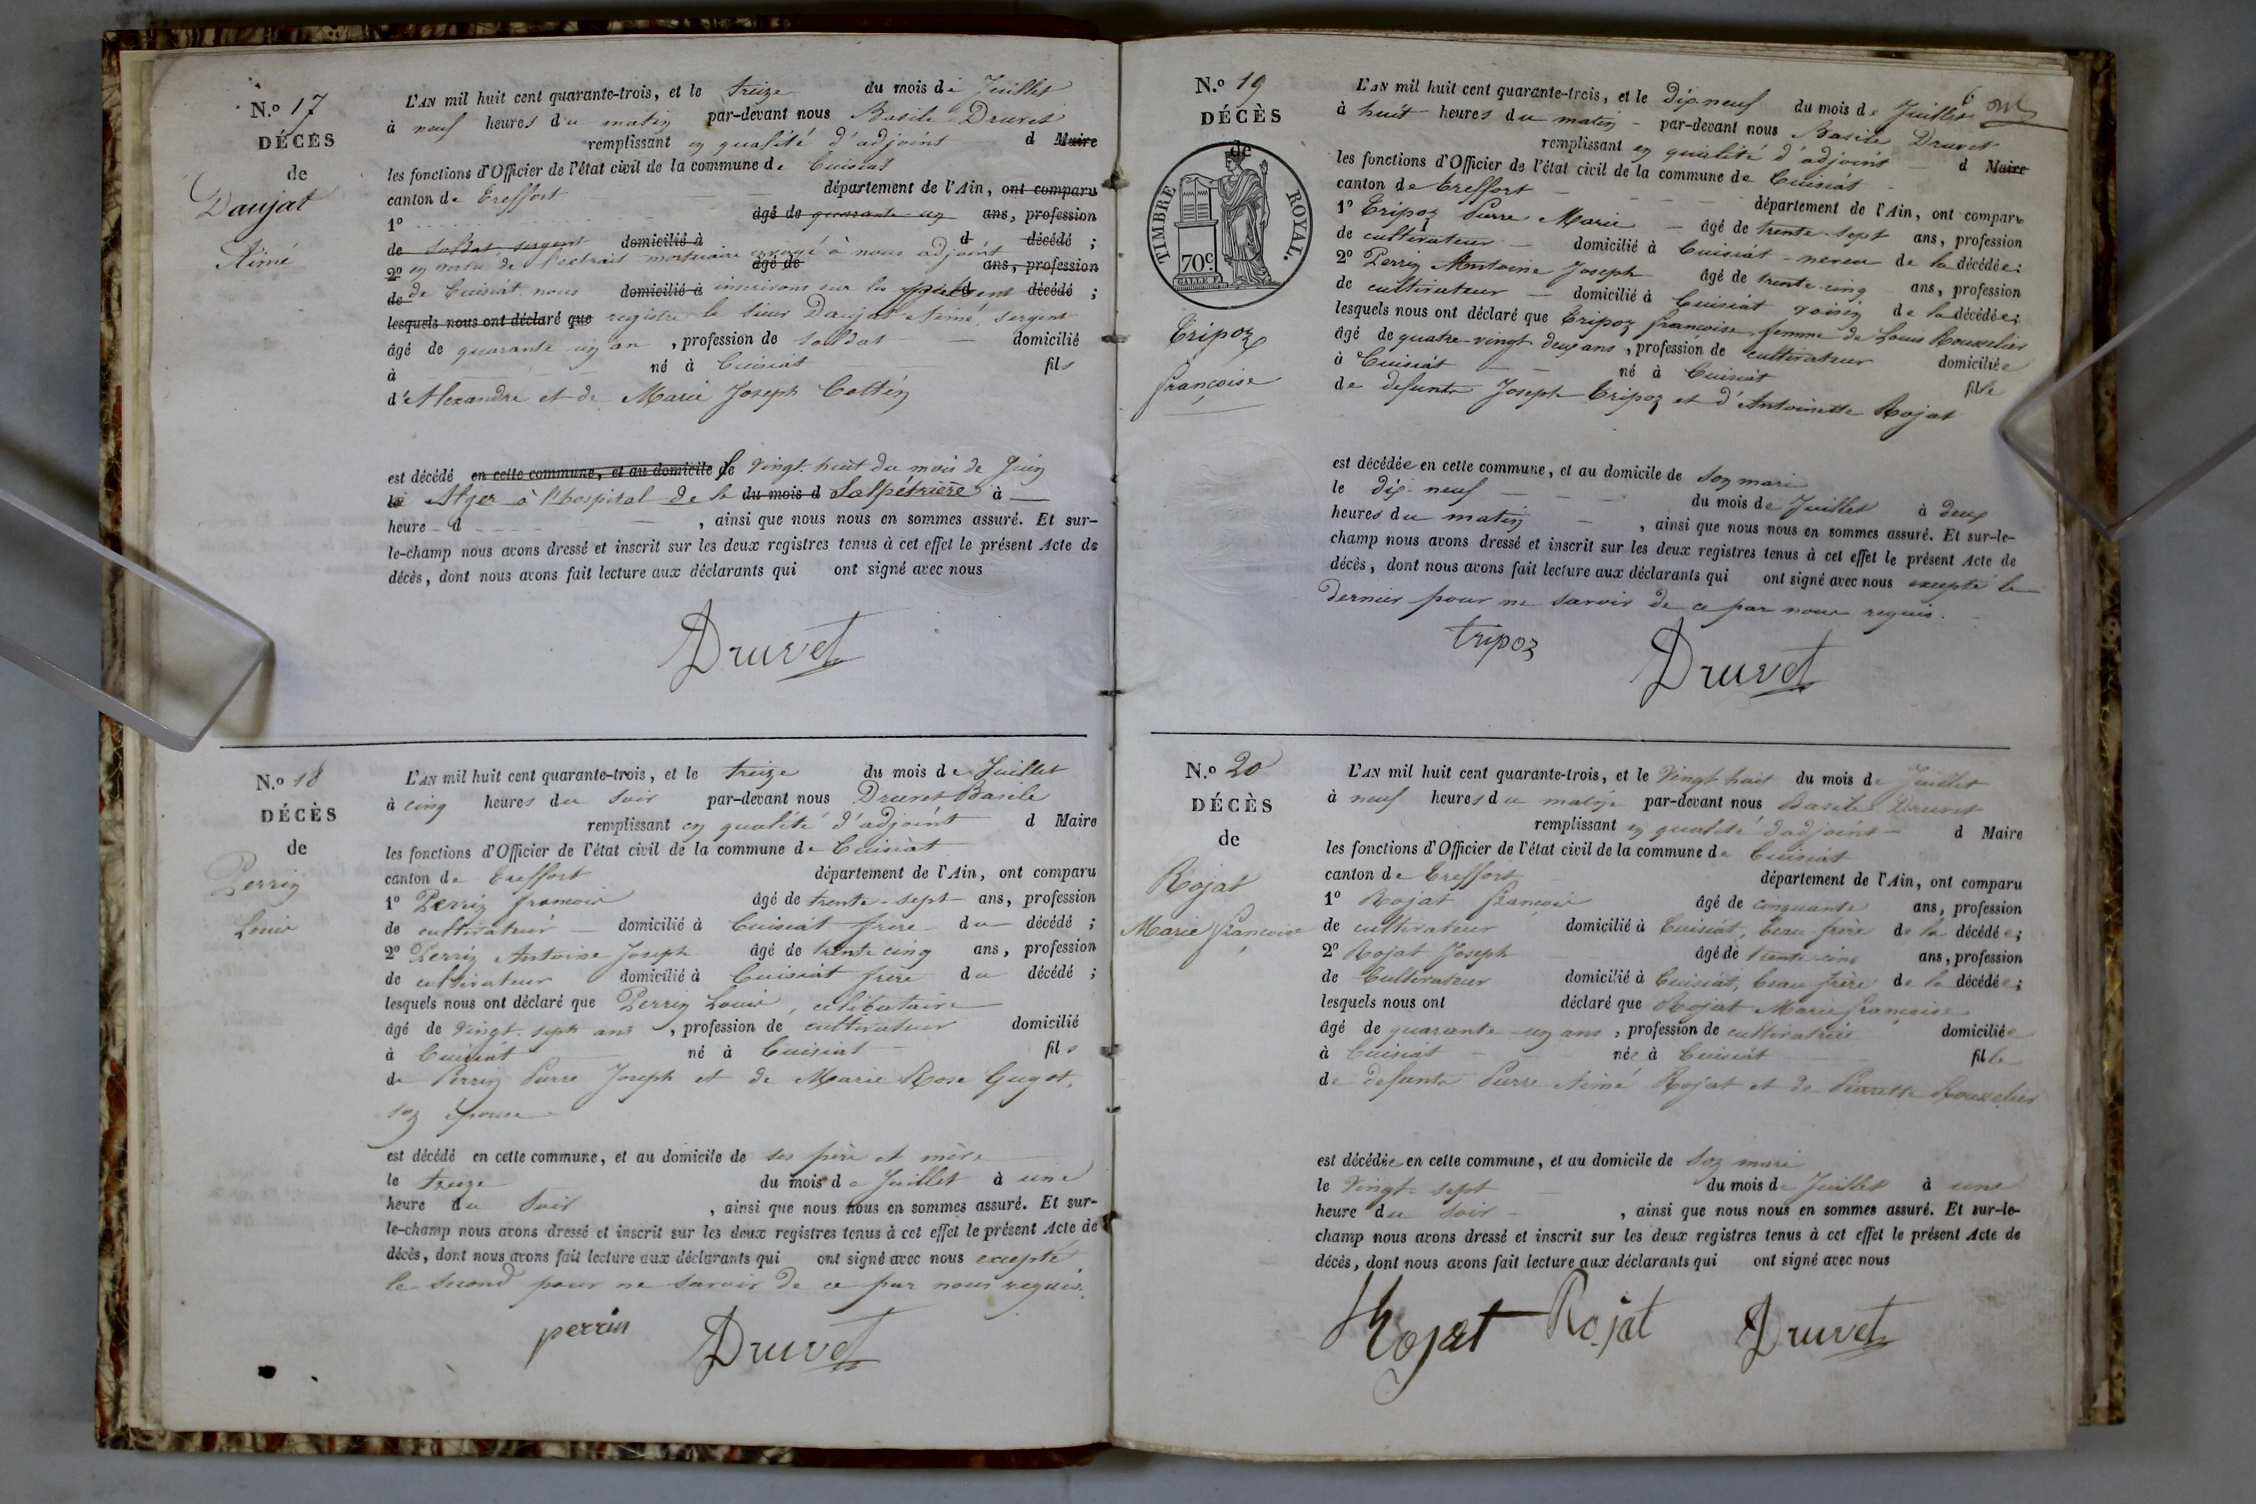 N.º 17
DÉCÈS
de
Daujat
Aimé
L'AN mil huit cent quarante-trois, et le treize du mois de Juillet
à neuf heures du matin par-devant nous Basile Druvet
remplissant en qualité d'adjoint d Maire
les fonctions d'Officier de l'état civil de la commune de Cuisiat
canton de Treffort département de l'Ain, ont comparu
1º âgé de quarante-un ans, profession
de Soldat sergent domicilié à d décédé ;
2º en vertu de l'extrait mortuaire envoyé à nous adjoint âgé de ans, profession
de de Cuisiat nous domicilié à inscrivons sur le présent d décédé ;
lesquels nous ont déclaré que registre le sieur Daujat Aimé, sergent
âgé de quarante un an , profession de Soldat domicilié
à né à Cuisiat fils
d'Alexandre et de Marie Joseph Cottin
est décédé en cette commune, et au domicile de le Vingt-huit du mois de Juin
le à Alger à l'hospital de la du mois d Salpétrière à
heure d , ainsi que nous nous en sommes assuré. Et sur-
le-champ nous avons dressé et inscrit sur les deux registres tenus à cet effet le présent Acte de
décès, dont nous avons fait lecture aux déclarants qui ont signé avec nous
Druvet
N.º 18
DÉCÈS
de
Perrin
Louis
L'AN mil huit cent quarante-trois, et le treize du mois de Juillet
à cinq heures du Soir par-devant nous Druvet Basile
remplissant en qualité d'adjoint d Maire
les fonctions d'Officier de l'état civil de la commune de Cuisiat
canton de Treffort département de l'Ain, ont comparu
1º Perrin françois âgé de trente-sept ans, profession
de cultivateur domicilié à Cuisiat frère du décédé ;
2º Perrin Antoine Joseph âgé de trente cinq ans, profession
de cultivateur domicilié à Cuisiat frère du décédé ;
lesquels nous ont déclaré que Perrin Louis, célibataire
âgé de Vingt-sept ans , profession de cultivateur domicilié
à Cuisiat né à Cuisiat fils
de Perrin Pierre Joseph et de Marie Rose Guyot,
son épouse
est décédé en cette commune, et au domicile de ses père et mère
le treize du mois de Juillet à une
heure du Soir , ainsi que nous nous en sommes assuré. Et sur-
le-champ nous avons dressé et inscrit sur les deux registres tenus à cet effet le présent Acte de
décès, dont nous avons fait lecture aux déclarants qui ont signé avec nous excepté
le second pour ne savoir de ce par nous requis.
perrin Druvet
N.º 19
DÉCÈS
de
TIMBRE ROYAL.
70c.
Tripoz
françoise
L'AN mil huit cent quarante-trois, et le Dix-neuf du mois de Juillet
à huit heures du matin par-devant nous Basile Druvet
remplissant en qualité d'adjoint d Maire
les fonctions d'Officier de l'état civil de la commune de Cuisiat
canton de Treffort département de l'Ain, ont comparu
1º Tripoz Pierre Marie âgé de trente-sept ans, profession
de cultivateur domicilié à Cuisiat - neveu de la décédée ;
2º Perrin Antoine Joseph âgé de trente-cinq ans, profession
de cultivateur domicilié à Cuisiat voisin de la décédée ;
lesquels nous ont déclaré que Tripoz françoise, femme de Louis Rousselier
âgé de quatre-vingt deux ans , profession de cultivateur domiciliée
à Cuisiat né à Cuisiat fille
de defunts Joseph Tripoz et d'Antoinette Rojat
est décédée en cette commune, et au domicile de son mari
le dix-neuf du mois de Juillet à deux
heures du matin , ainsi que nous nous en sommes assuré. Et sur-le-
champ nous avons dressé et inscrit sur les deux registres tenus à cet effet le présent Acte de
décès, dont nous avons fait lecture aux déclarants qui ont signé avec nous excepté le
dernier pour ne savoir de ce par nous requis.
tripoz Druvet
N.º 20
DÉCÈS
de
Rojat
Marie françoise
L'AN mil huit cent quarante-trois, et le Vingt huit du mois de Juillet
à neuf heures du matin par-devant nous Basile Druvet
remplissant en qualité d'adjoint d Maire
les fonctions d'Officier de l'état civil de la commune de Cuisiat
canton de Treffort département de l'Ain, ont comparu
1º Rojat françois âgé de cinquante ans, profession
de cultivateur domicilié à Cuisiat, beau-frère de la décédée ;
2º Rojat Joseph âgé de trente-cinq ans, profession
de Cultivateur domicilié à Cuisiat, beau frère de la décédée ;
lesquels nous ont déclaré que Rojat Marie françoise
âgé de quarante-un ans , profession de cultivatrice domiciliée
à Cuisiat née à Cuisiat fille
de defunts Pierre Aimé Rojat et de Pierrette Rousselier
est décédée en cette commune, et au domicile de son mari
le Vingt-sept du mois de Juillet à une
heure du Soir , ainsi que nous nous en sommes assuré. Et sur-le-
champ nous avons dressé et inscrit sur les deux registres tenus à cet effet le présent Acte de
décès, dont nous avons fait lecture aux déclarants qui ont signé avec nous
Rojat Rojat Druvet